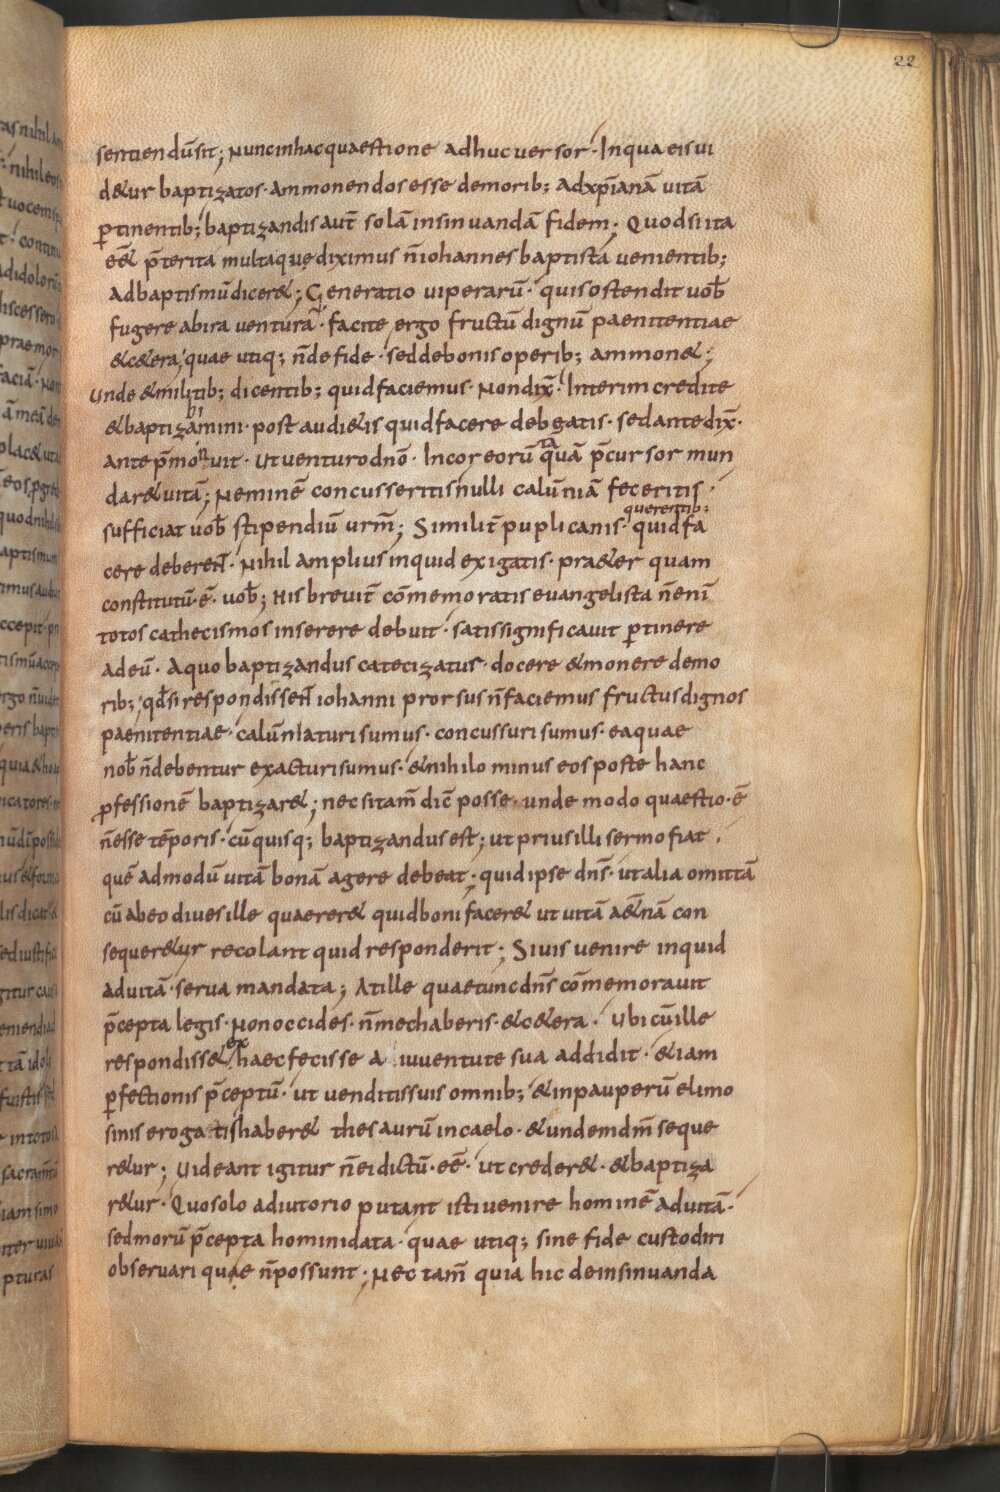 22
sentiendu̅sit; Nuncinhacquaestione adhucuersor · Inqua eisui
d&ur baptizatos · ammonendosesse demorib; Adxp̅iana̅ uita̅
ꝑtinentib; baptizandisaut̅ sola̅insinuanda̅ fidem · Quodsiita
ee̅& p̅terita multaquędiximus n̅iohannes baptista̅ uenientib;
Adbaptismu̅dicer&; Generatio uiperaru̅ · quisostendit uob̅
fugere abira ventura̅ · facite ergo fructu̅ dignu̅ paenitentiae
&c&era quae utiq; n̅defide · seddebonisoperib; ammon&;
Unde &militib; dicentib; quidfaciemus · Nondix̅ · Interim credite
&baptizamini · post audi&is quidfacere debeatis · sedantedix̅ ·
antep̅mo n uit · Utventurodn̅o · Incoreoru̅ qua̅ p̅cursor mun
dar&uita̅; Nemine̅ concusseritisnulli calu̅nia̅ feceritis ·
querentib;
sufficiat uob̅ stipendiu̅ urm̅; Simili t̅ puplicanis · quidfa
cere deberen̅t · Nihil ampliusinquid exigatis · pra&er quam
constitutu̅ · e̅ · uob̅; His breuit̅ co̅memoratis euangelista n̅eni̅
totos cathecismos inserere debuit · satissignificauit ꝑtinere
adeu̅ · Aquo baptizandus catecizatus · docere &monere demo
rib; qd̅si respondissen̅t iohanni prorsus n̅faciemus fructusdignos
paenitentiae · calu̅niaturi sumus · concussuri sumus · eaquae
nob̅ n̅debentur exacturisumus · &nihilo minus eos poste hanc
ꝓfessione̅ baptizar&; nec sitam̅ dic̅ posse · unde modo quaestio · e̅
n̅esse te̅poris · cu̅quisq; baptizandusest; ut priusilli sermo fiat ·
que̅ admodu̅ uita̅ bona̅ agere debeat · quidipse dn̅s · utalia omitta̅
cu̅ abeo diuesille quaerer& quidboni facer& ut uita̅ a&̅na̅ con
sequer&ur recolant quid responderit; Siuis uenire inquid
aduita̅ · serua mandata; Atille quaetuncdn̅s co̅memorauit
p̅cepta legis · Nonoccides · n̅mechaberis · &c&era · Ubicu̅ille
ex
respondiss& haecfecisse a iuuentute sua addidit · &iam
ꝑfectionis p̅ceptu̅ · ut uenditissuis omnib; &inpauperu̅ elimo
sinis erogatishaber& thesauru̅ incaelo · &undemdm̅ seque
r&ur; Uideant igitur n̅eidictu̅ · ee̅ · ut creder& · &baptiza
r&ur · Quosolo adiutorio putant istiuenire homine̅ aduita̅ ·
sedmoru̅ p̅cepta hominidata · quae utiq; sine fide custodiri
obseruari quae n̅possunt; Nec tam̅ quia hic deinsinuanda